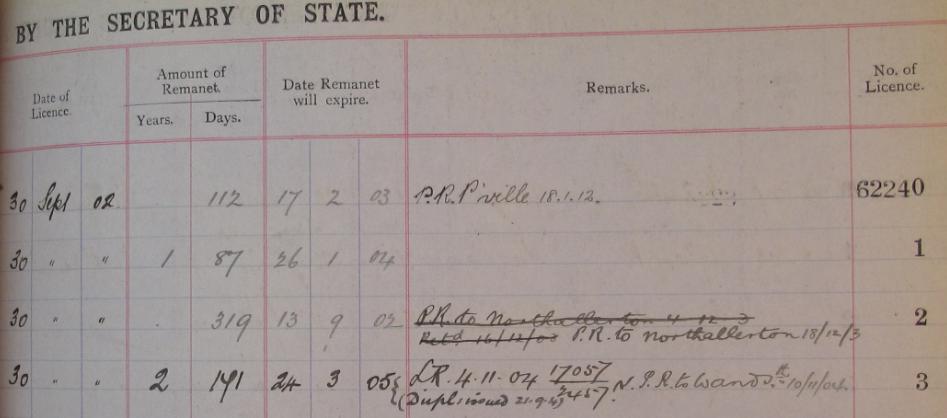 BY THE SECRETARY OF STATE.
Date of Licence. Amount of Remanet. Years. Days. Date Remanet will expire. Remarks. No. of Licence.
30 Sept 02. 112 17 2 03 P.R. P'ville 18.1.12. 62240
30 " " 1 87 26 1 04 1
30 " " 319 13 9 02 P.R. to Northallerton 4 12 3 2
Retd 16/12/03 P.R. to Northallerton 18/12/3
30 " " 2 141 24 3 05 L.R. 4.11.04 17057/3457 N. P.R. to Wands 10/11/04. 3
(Dupl: issued 21.9.4)